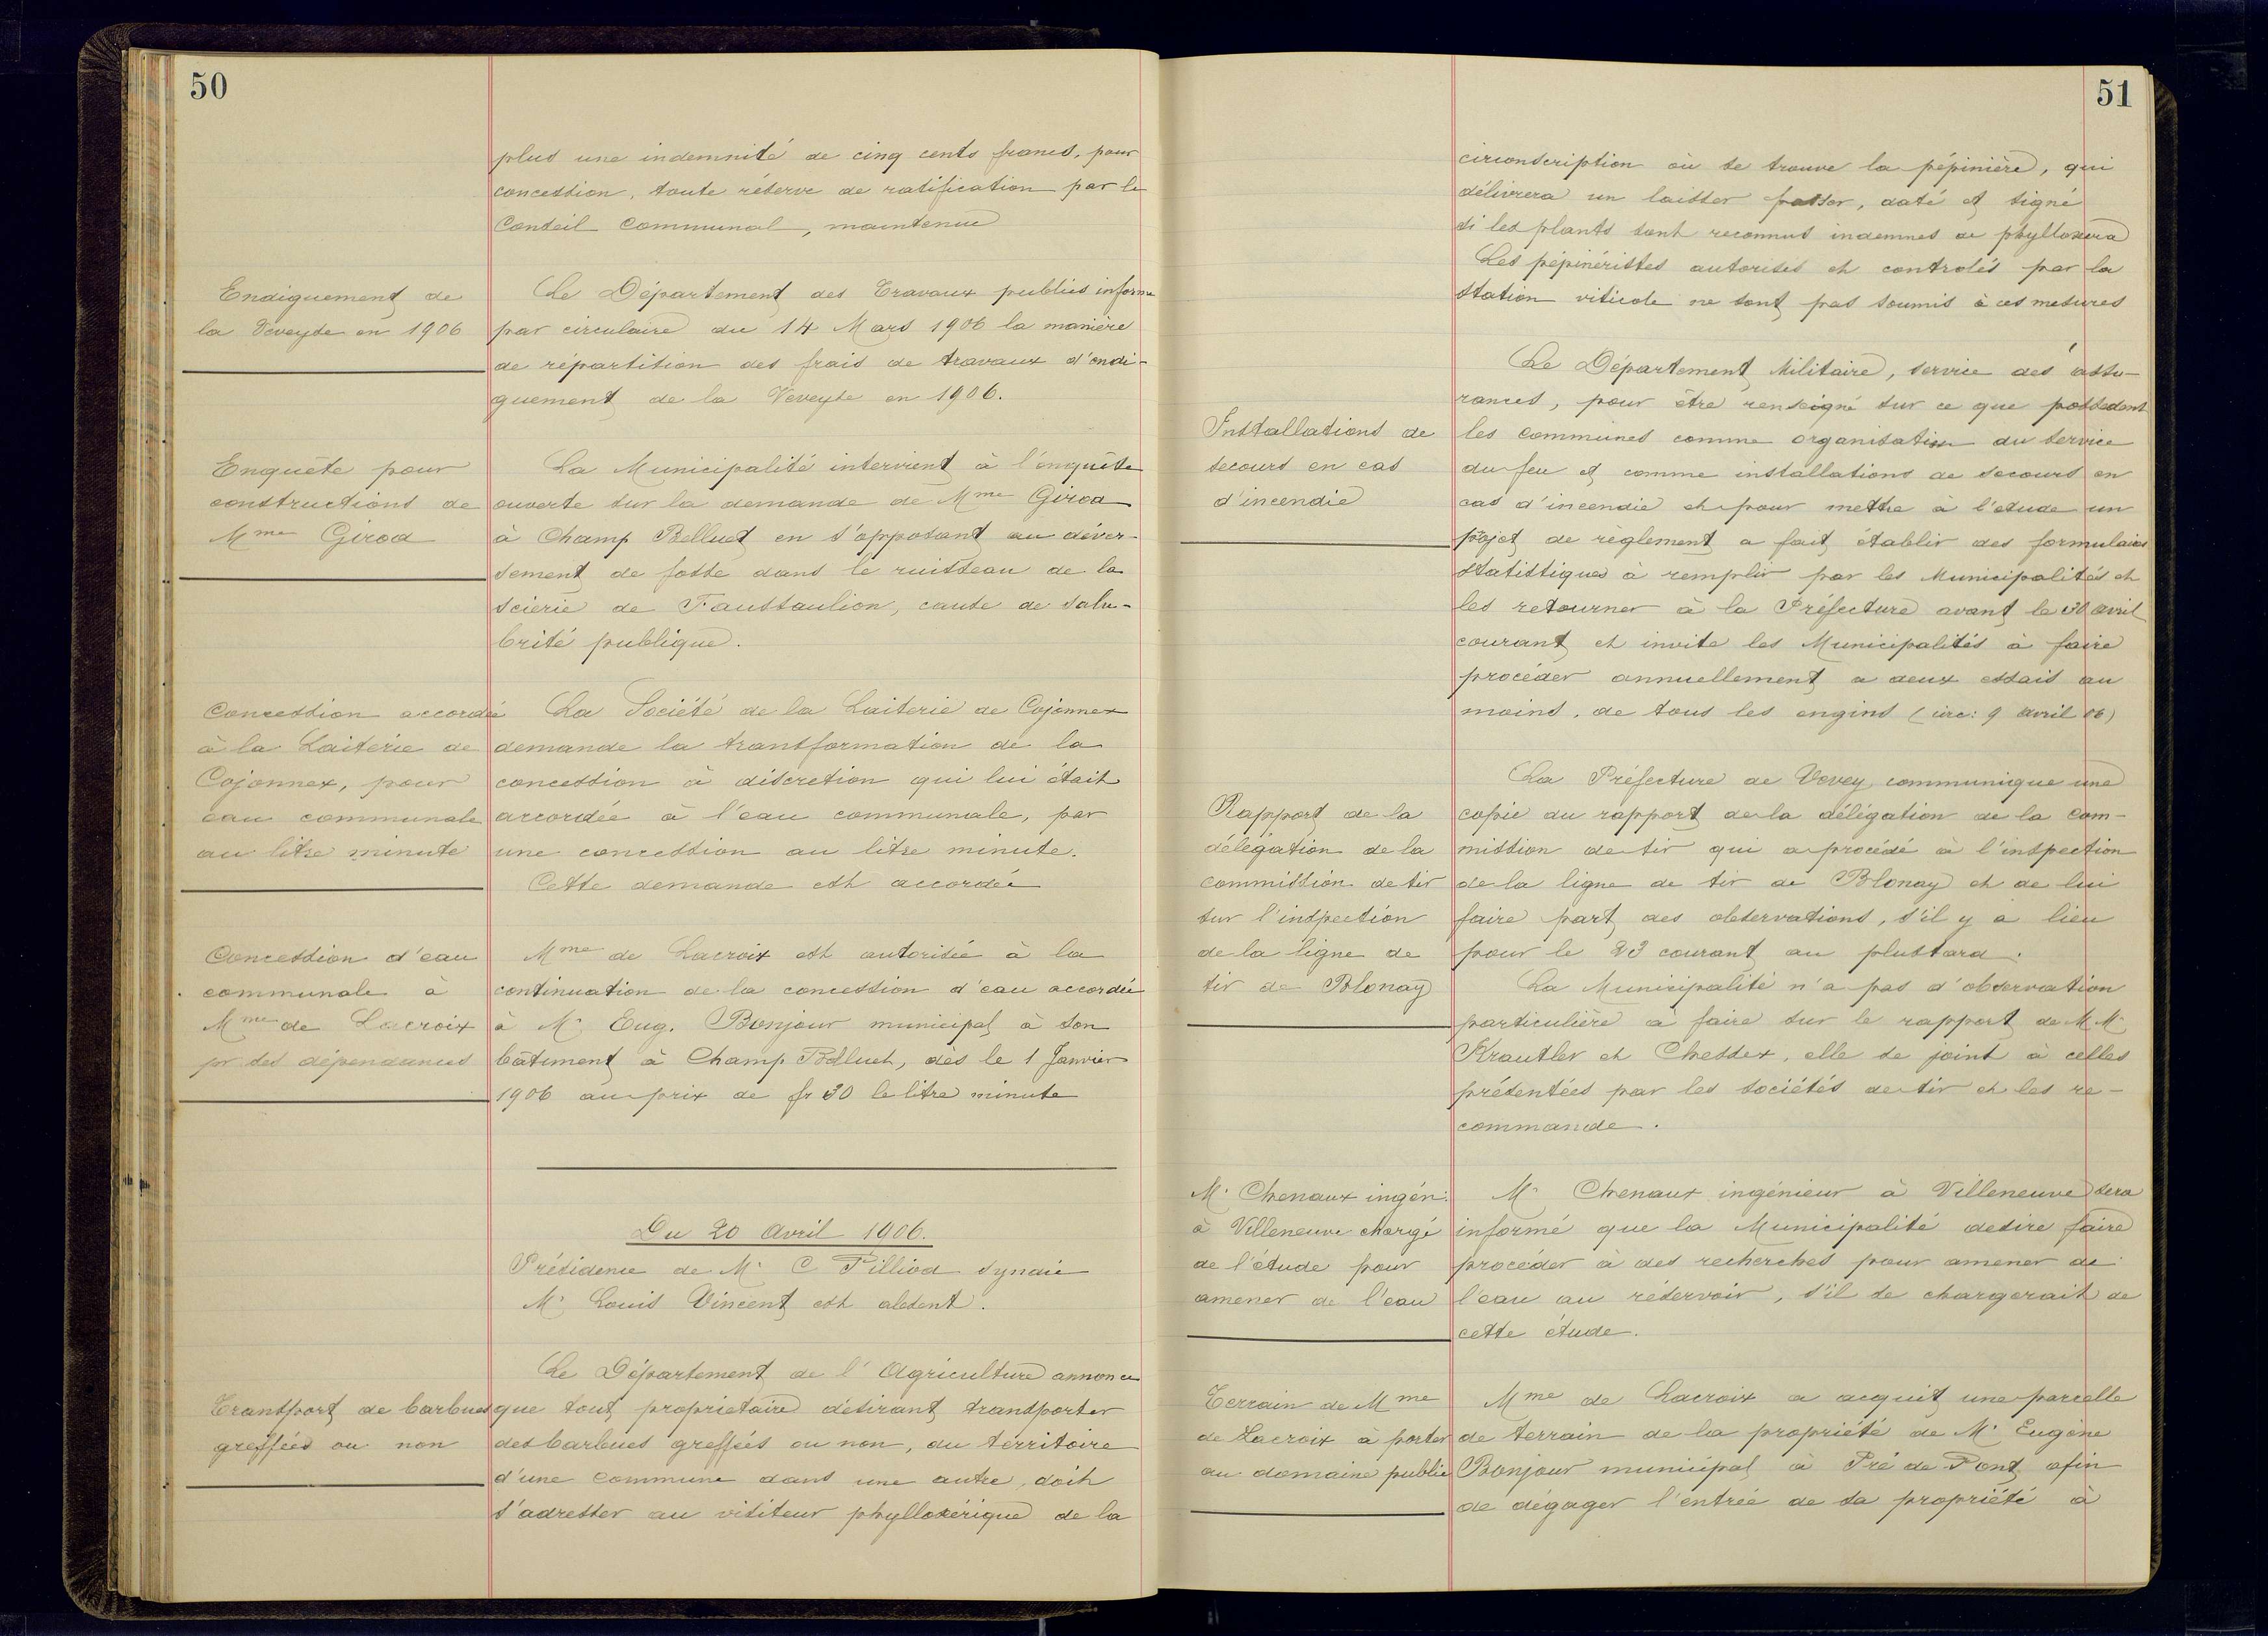 50
plus une indemnité de cinq cents francs, pour
concession, toute réserve de ratification par le
Conseil Communal, maintenue
Endiguement de
la Veveyse en 1906
Le Département des Travaux publics informe
par circulaire du 14 Mars 1906 la manière
de répartition des frais de travaux d'endi-
guement de la Veveyse en 1906.
Enquête pour
constructions de
Mme Girod
La Municipalité intervient à l'enquête
ouverte sur la demande de Mme Girod
à Champ Belluet en s'opposant au déver-
sement de fosse dans le ruisseau de la
scierie de Faussaulion, cause de salu-
brité publique.
Concession accordée
à la Laiterie de
Cojonnex, pour
eau communale
au litre minute
La Société de la Laiterie de Cojonnex
demande la transformation de la
concession à discretion qui lui était
accordée à l'eau communale, par
une concession au litre minute.
Cette demande est accordée
Concession d'eau
communale à
Mme de Lacroix
pr ses dépendances
Mme de Lacroix est autorisée à la
continuation de la concession d'eau accordée
à Mr Eug. Bonjour municipal à son
bâtiment à Champ Belluet, dès le 1 Janvier
1906 au prix de fr 30 le litre minute
Du 20 Avril 1906.
Présidence de Mr C Pilliod syndic
Mr Louis Vincent est absent.
Transport de barbues
greffées ou non
Le Département de l'Agriculture annonce
que tout propriétaire désirant transporter
des barbues greffées ou non, du territoire
d'une commune dans une autre, doit
s'adresser au visiteur phylloxérique de la
51
circonscription où se trouve la pépinière, qui
délivrera un laisser passer, daté et signé
si les plants sont reconnus indemnes de phylloxera
Les pépinéristes autorisés et controlés par la
station viticole ne sont pas soumis à ces mesures
Installations de
secours en cas
d'incendie
Le Département Militaire, service des assu-
rances, pour être renseigné sur ce que possedent
les communes comme organisation du service
du feu et comme installations de secours en
cas d'incendie et pour mettre à l'étude un
projet de règlement a fait établir des formulaires
statistiques à remplir par les Municipalités et
les retourner à la Préfecture avant le 30 avril
courant et invite les Municipalités à faire
procéder annuellement a deux essais au
moins, de tous les engins (circ: 9 avril 06)
Rapport de la
délégation de la
commission de tir
sur l'inspection
de la ligne de
tir de Blonay
La Préfecture de Vevey communique une
copie du rapport de la délégation de la com-
mission de tir qui a procédé à l'inspection
de la ligne de tir de Blonay et de lui
faire part des observations, s'il y a lieu
pour le 23 courant au plustard.
La Municipalité n'a pas d'observation
particulière à faire sur le rapport de M.M.
Krautler et Chessex, elle se joint à celles
présentées par les sociétés de tir et les re-
commande.
Mr Chenaux ingén:
à Villeneuve chargé
de l'étude pour
amener de l'eau
Mr Chenaux ingénieur à Villeneuve sera
informé que la Municipalité desire faire
procéder à des recherches pour amener de
l'eau au réservoir, s'il se chargerait de
cette étude.
Terrain de Mme
de Lacroix à porter
au domaine public
Mme de Lacroix a acquit une parcelle
de terrain de la propriété de Mr Eugène
Bonjour municipal à Pré de Pont afin
de dégager l'entrée de sa propriété à